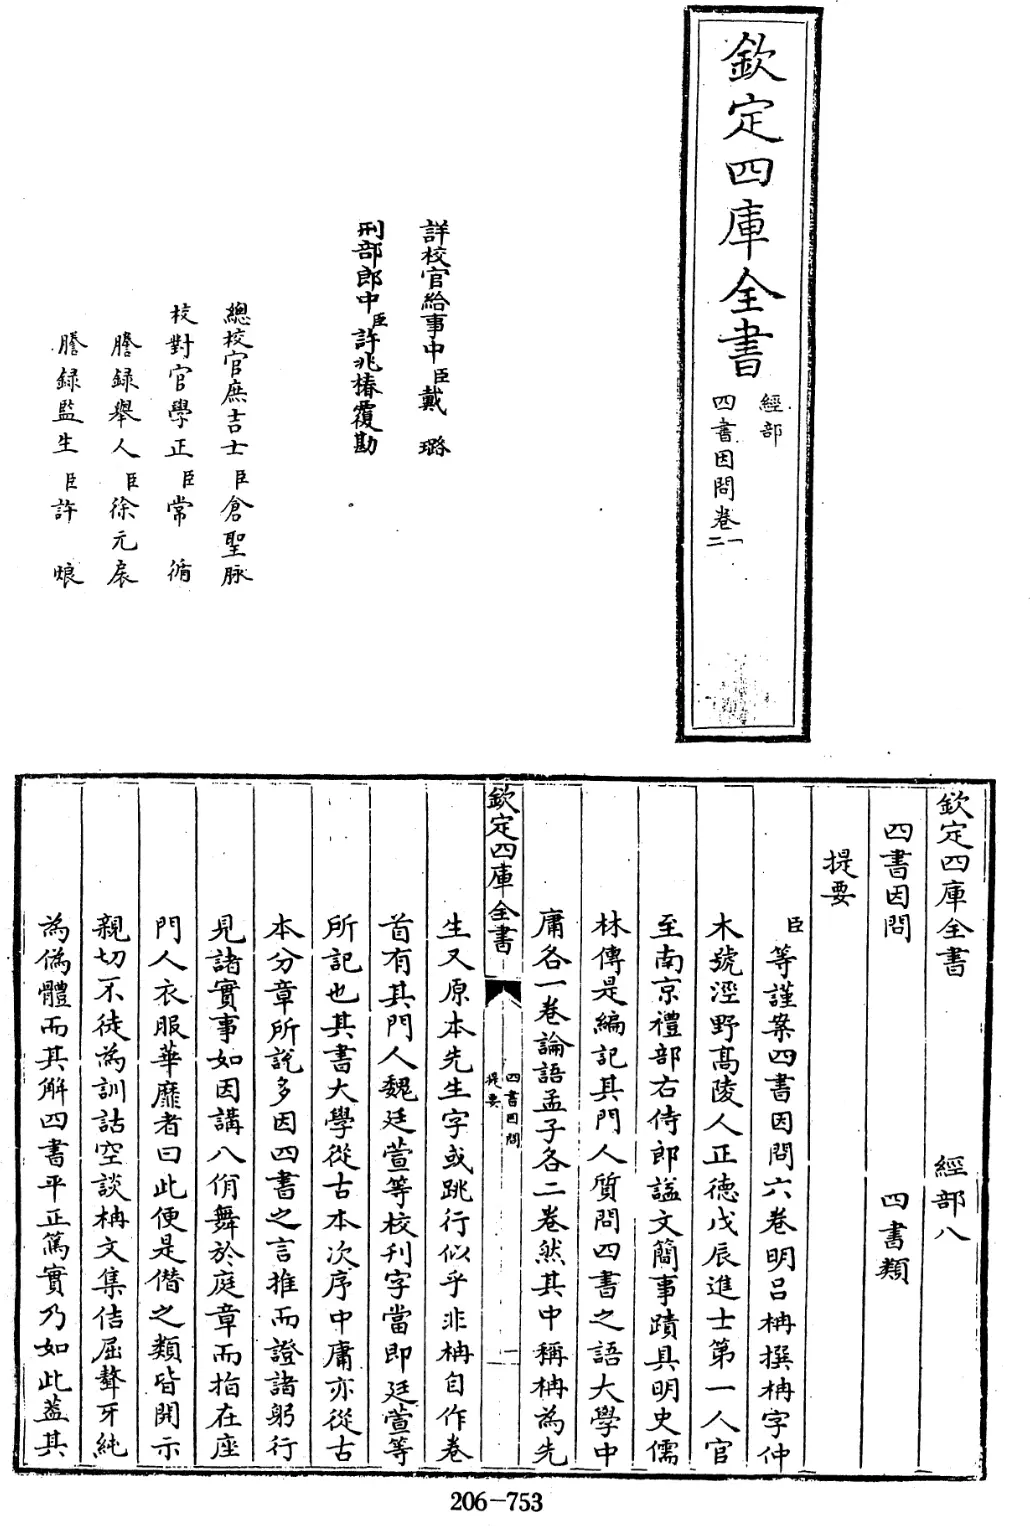 欽定四庫全書
經部
四書因問卷一
二
詳校官給事中臣戴璐
刑部郎中臣許兆椿覆勘
總校官庶吉士臣倉聖脉
校對官學正臣常循
謄錄舉人臣徐元扆
謄錄監生臣許烺
欽定四庫全書 經部八
四書因問 四書類
提要
臣等謹案四書因問六卷明吕柟撰柟字仲
木號涇野高陵人正德戊辰進士第一人官
至南京禮部右侍郎諡文簡事蹟具明史儒
林傳是編記其門人質問四書之語大學中
庸各一卷論語孟子各二卷然其中稱柟為先
欽定四庫全書
四書因問
提要
一
生又原本先生字或跳行似乎非柟自作卷
首有其門人魏廷萱等校刋字當即廷萱等
所記也其書大學從古本次序中庸亦從古
本分章所說多因四書之言推而證諸躬行
見諸實事如因講八佾舞於庭章而指在座
門人衣服華靡者曰此便是僭之類皆開示
親切不徒為訓詁空談柟文集佶屈聱牙純
為偽體而其解四書平正篤實乃如此蓋其
206-753